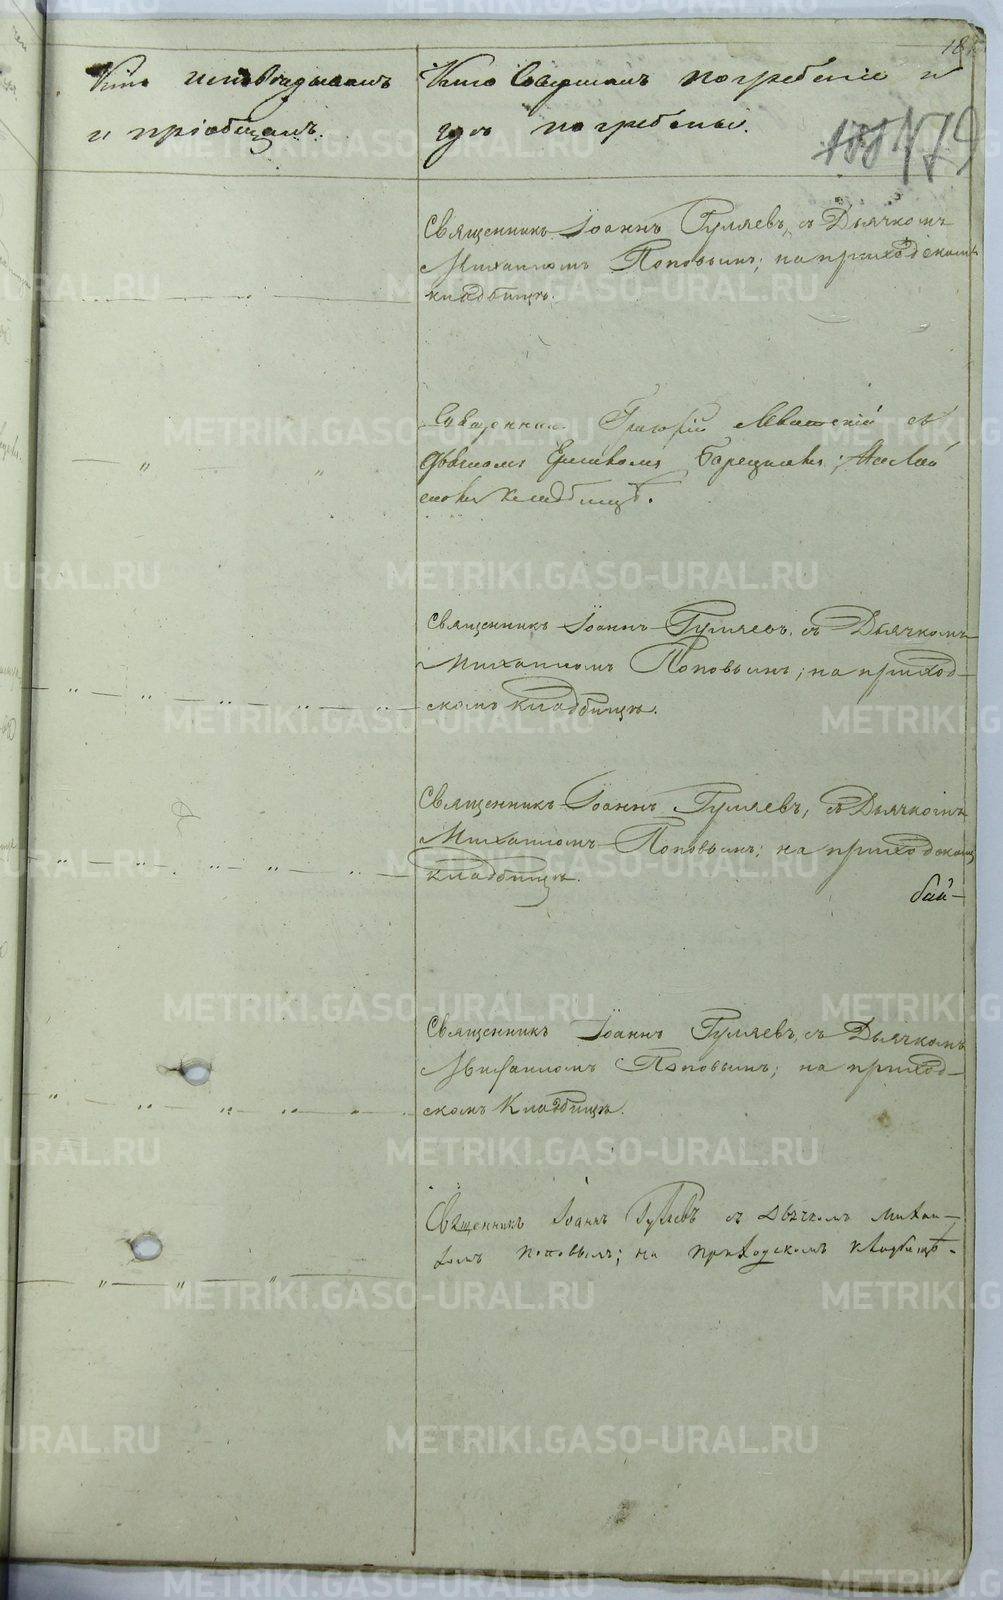 Кто исповѣдывалъ
и пріобщалъ.
Кто совершалъ погребеніе и
гдѣ погребены.
179
Священникъ Іоаннъ Гуляевъ, съ Дьячкомъ
Михаиломъ Поповымъ; на приходскомъ
кладбищѣ.
Священникъ Григорій съ
кладбищѣ.
Священникъ Іоаннъ Гуляевъ, съ Дьячкомъ
Михаиломъ Поповымъ; на приход-
скомъ кладбищѣ.
Священникъ Іоаннъ Гуляевъ, съ Дьячкомъ
Михаиломъ Поповымъ; на приходскомъ
кладбищѣ.
бай-
Священникъ Іоаннъ Гуляевъ, съ Дьячкомъ
Михаиломъ Поповымъ; на приход-
скомъ Кладбищѣ.
Священникъ Іоаннъ Гуляевъ съ Дьячкомъ Михаи-
ломъ Поповымъ; на приходскомъ кладбищѣ.
METRIKI.GASO-URAL.RU